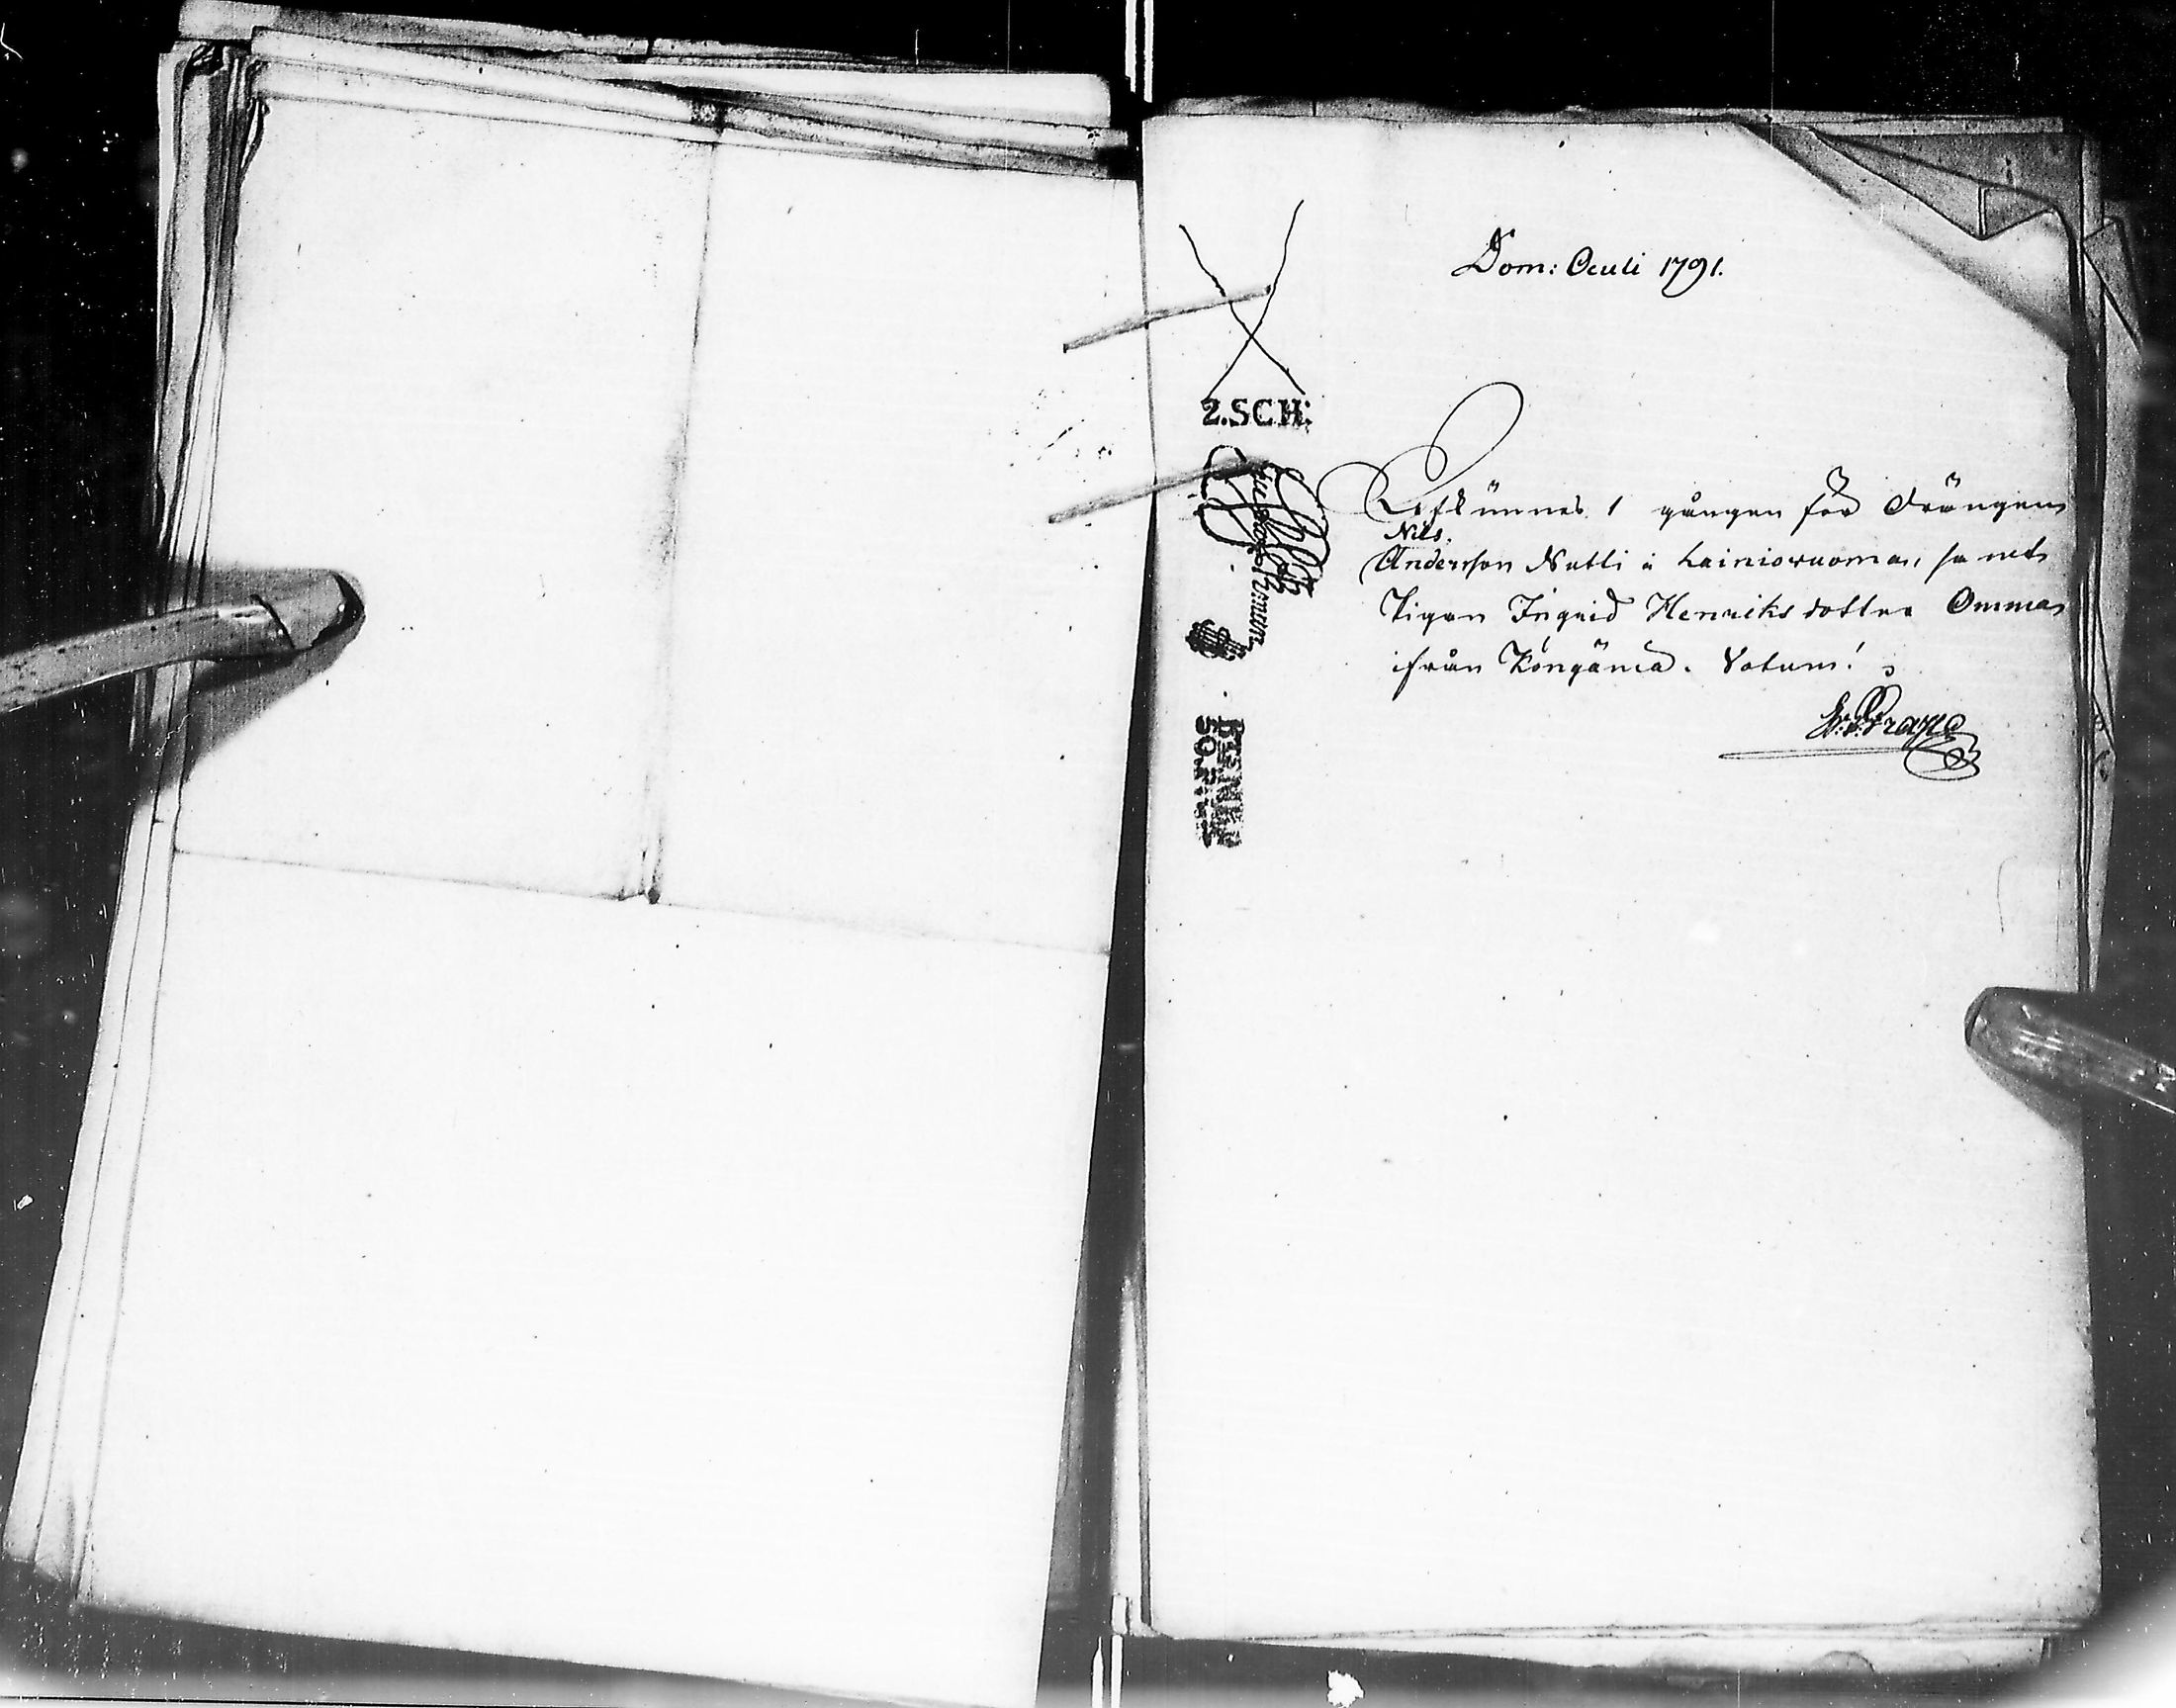 Dom: Oculi 1791.
2.SCH:
Affkunnes 1 gången för Drängen
Nils.
Andersson Nutti i Lainiowuoma, sa mt
Pigan Ingrid Henriksdotter Omma
ifrån Köngämä. Votum!